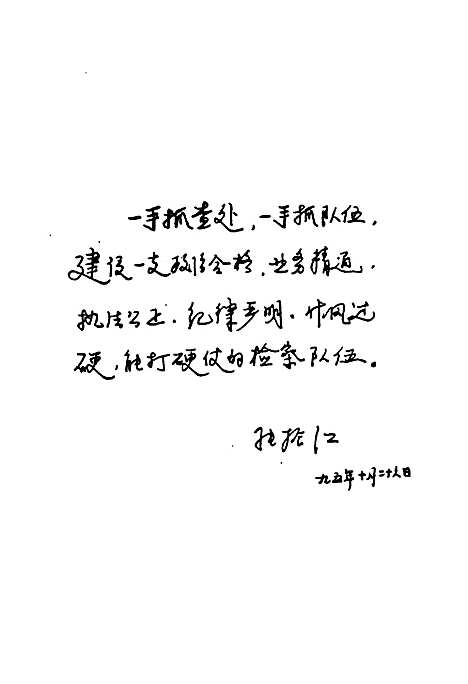 一手抓查处，一手抓队伍，
建设一支政治合格、业务精通、
执法公正、纪律严明、作风过
硬，能打硬仗的检察队伍。
张振江
九五年十月二十八日